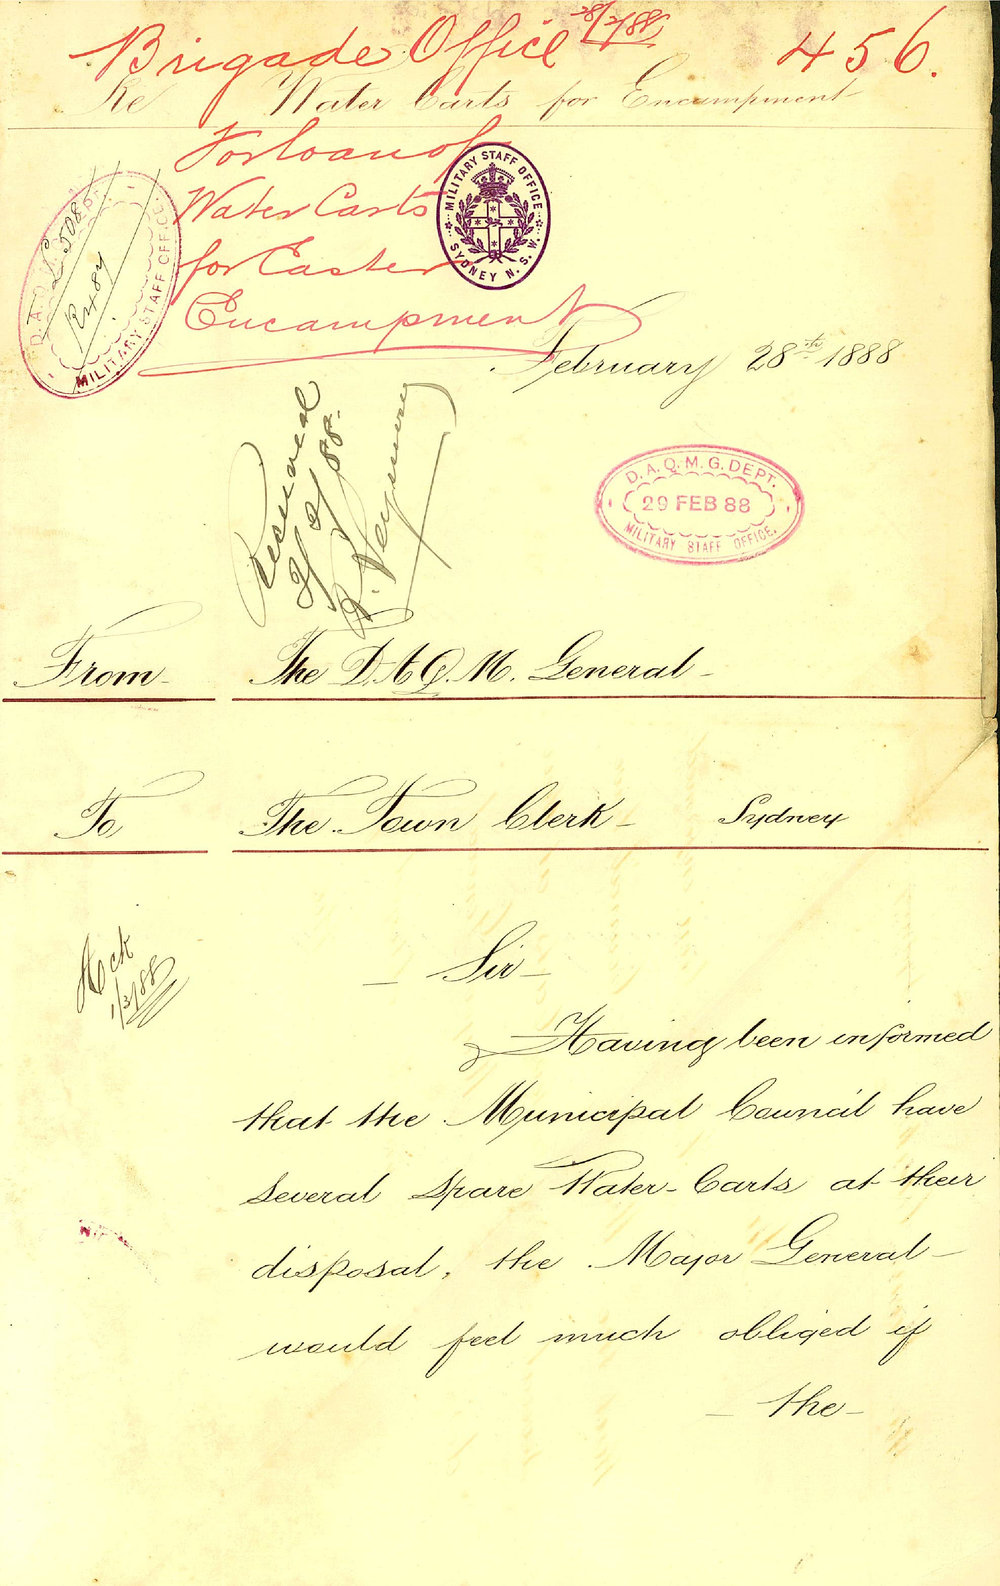 Brigade Office 28/2/88
456.
Re Water Carts for Encampment
For loan of
Water Carts
for Easter
Encampment
MILITARY STAFF OFFICE
SYDNEY N.S.W.
D.A.Q.
L 5085
R 487
MILITARY STAFF OFFICE
February 28th 1888
Received
29/2/88
D.A.Q.M.G. DEPT.
29 FEB 88
MILITARY STAFF OFFICE.
From The D.A.Q.M. General
To The Town Clerk Sydney
Ack
1/3/88
Sir
Having been informed
that the Municipal Council have
several spare Water-Carts at their
disposal, the Major General
would feel much obliged if
the